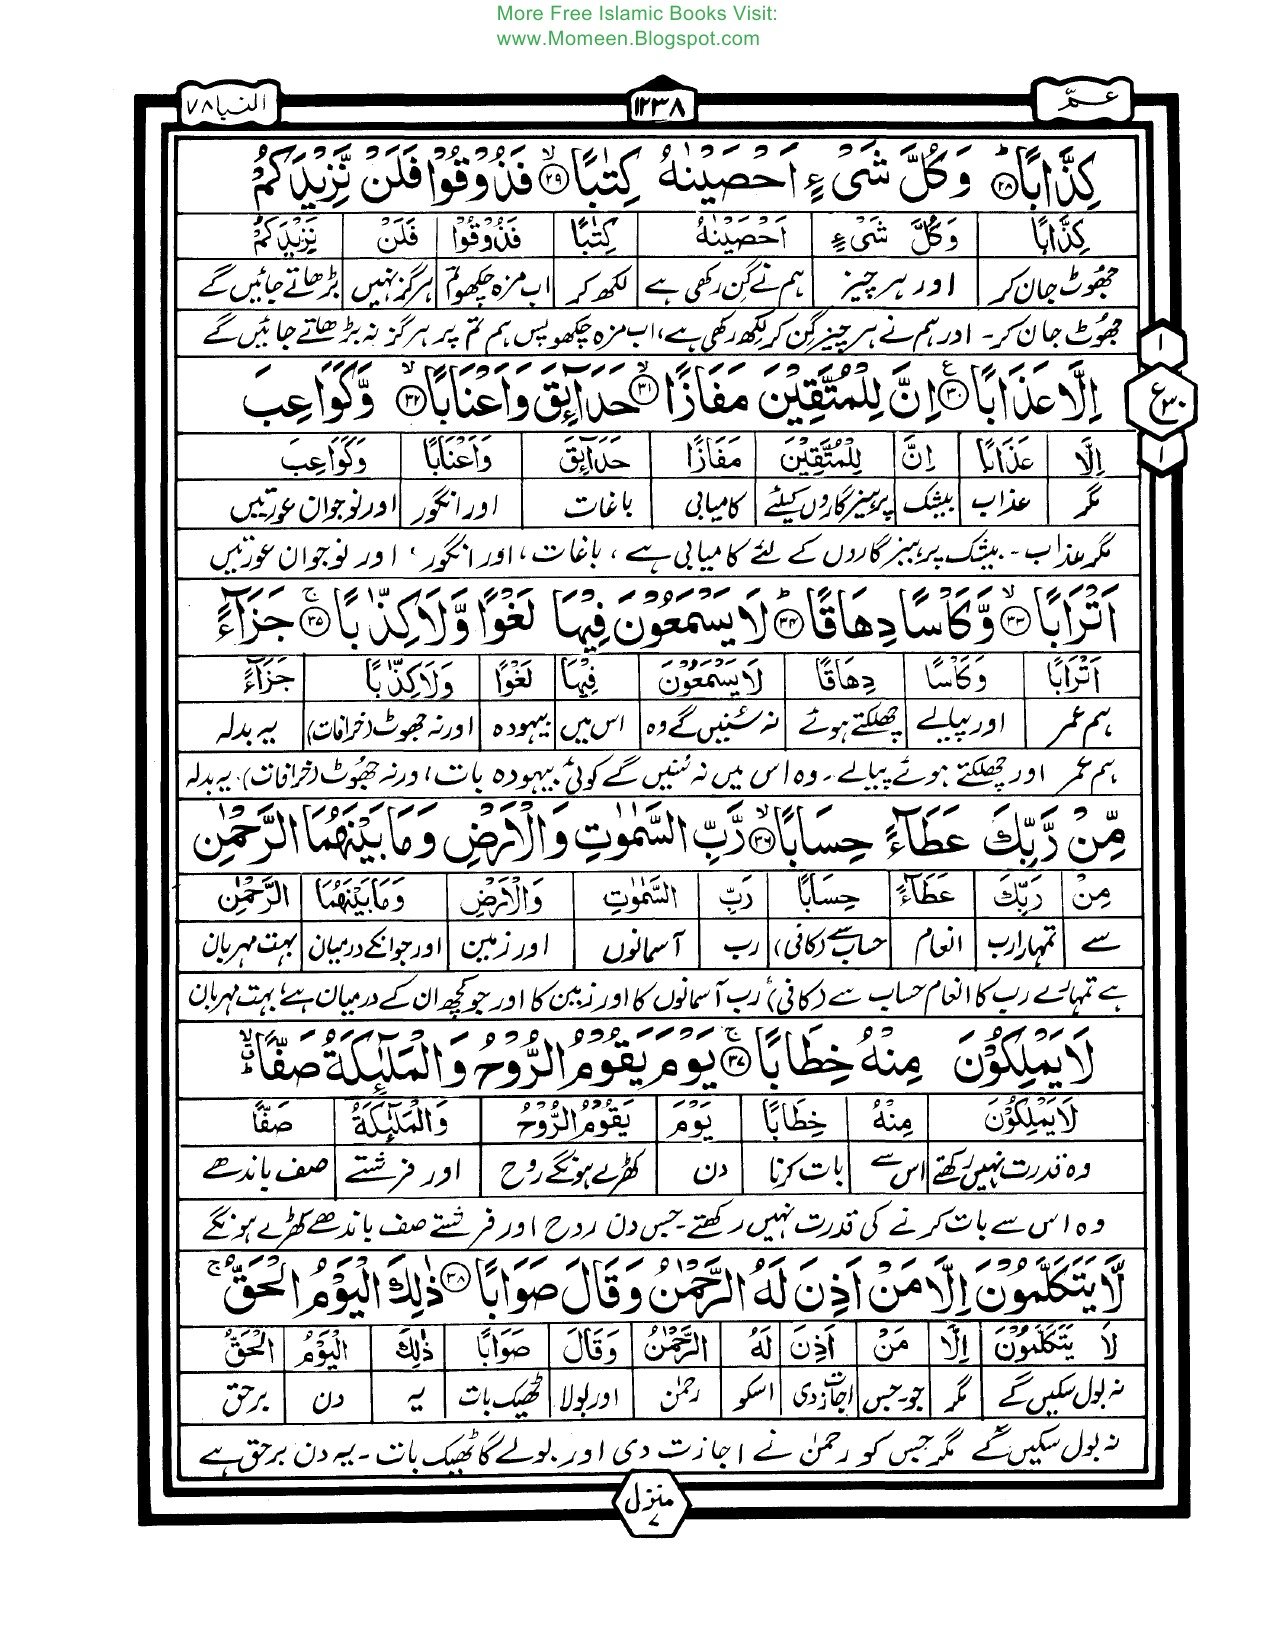 More Free Islamic Books Visit:
www.Momeen.Blogspot.com
عـمّ ١٢٣٨ النبا ٧٨
كِذَّابًا ۭ ﴿۲۸﴾ وَكُلَّ شَيْءٍ اَحْصَيْنٰهُ كِتٰبًا ۙ ﴿۲۹﴾ فَذُوْقُوْا فَلَنْ نَّزِيْدَكُمْ
كِذَّابًا وَكُلَّ شَيْءٍ اَحْصَيْنٰهُ كِتٰبًا فَذُوْقُوْا فَلَنْ نَزِيْدَكُمْ
جھوٹ جان کر اور ہر چیز ہم نے گن رکھی ہے لکھ کر اب مزہ چکھو تم ہرگز نہیں بڑھاتے جائیں گے
جھوٹ جان کر۔ اور ہم نے ہر چیز گن کر لکھ رکھی ہے، اب مزہ چکھو پس ہم تم پر ہرگز نہ بڑھاتے جائیں گے
اِلَّا عَذَابًا ﴿۳۰﴾ ع اِنَّ لِلْمُتَّقِيْنَ مَفَازًا ۙ ﴿۳۱﴾ حَدَآئِقَ وَاَعْنَابًا ۙ ﴿۳۲﴾ وَّكَوَاعِبَ
١ ع ٣٠ ١
اِلَّا عَذَابًا اِنَّ لِلْمُتَّقِيْنَ مَفَازًا حَدَآئِقَ وَاَعْنَابًا وَكَوَاعِبَ
مگر عذاب بیشک پرہیزگاروں کیلئے کامیابی باغات اور انگور اور نوجوان عورتیں
مگر عذاب۔ بیشک پرہیزگاروں کے لئے کامیابی ہے، باغات، اور انگور، اور نوجوان عورتیں
اَتْرَابًا ۙ ﴿۳۳﴾ وَّكَاْسًا دِهَاقًا ۭ ﴿۳۴﴾ لَا يَسْمَعُوْنَ فِيْهَا لَغْوًا وَّلَا كِذّٰبًا ۚ ﴿۳۵﴾ جَزَآءً
اَتْرَابًا وَكَاْسًا دِهَاقًا لَا يَسْمَعُوْنَ فِيْهَا لَغْوًا وَلَا كِذّٰبًا جَزَآءً
ہم عمر اور پیالے چھلکتے ہوئے نہ سنیں گے وہ اس میں بیہودہ اور نہ جھوٹ (خرافات) یہ بدلہ
ہم عمر اور چھلکتے ہوئے پیالے۔ وہ اس میں نہ سنیں گے کوئی بیہودہ بات، اور نہ جھوٹ (خرافات)۔ یہ بدلہ
مِّنْ رَّبِّكَ عَطَآءً حِسَابًا ۙ ﴿۳۶﴾ رَّبِّ السَّمٰوٰتِ وَالْاَرْضِ وَمَا بَيْنَهُمَا الرَّحْمٰنِ
مِنْ رَبِّكَ عَطَآءً حِسَابًا رَبِّ السَّمٰوٰتِ وَالْاَرْضِ وَمَا بَيْنَهُمَا الرَّحْمٰنِ
سے تمہارا رب انعام حساب سے (کافی) رب آسمانوں اور زمین اور جو انکے درمیان بہت مہربان
ہے تمہارے رب کا انعام حساب سے (کافی) رب آسمانوں کا اور زمین کا اور جو کچھ ان کے درمیان ہے، بہت مہربان
لَا يَمْلِكُوْنَ مِنْهُ خِطَابًا ۚ ﴿۳۷﴾ يَوْمَ يَقُوْمُ الرُّوْحُ وَالْمَلٰٓئِكَةُ صَفًّا
لَا يَمْلِكُوْنَ مِنْهُ خِطَابًا يَوْمَ يَقُوْمُ الرُّوْحُ وَالْمَلٰٓئِكَةُ صَفًّا
وہ قدرت نہیں رکھتے اس سے بات کرنا دن کھڑے ہونگے روح اور فرشتے صف باندھے
وہ اس سے بات کرنے کی قدرت نہیں رکھتے۔ جس دن روح اور فرشتے صف باندھے کھڑے ہونگے
لَّا يَتَكَلَّمُوْنَ اِلَّا مَنْ اَذِنَ لَهُ الرَّحْمٰنُ وَقَالَ صَوَابًا ﴿۳۸﴾ ذٰلِكَ الْيَوْمُ الْحَقُّ ۚ
لَا يَتَكَلَّمُوْنَ اِلَّا مَنْ اَذِنَ لَهُ الرَّحْمٰنُ وَقَالَ صَوَابًا ذٰلِكَ الْيَوْمُ الْحَقُّ
نہ بول سکیں گے مگر جو۔جس اجازت دی اسکو رحمٰن اور بولا ٹھیک بات یہ دن برحق
نہ بول سکیں گے مگر جس کو رحمٰن نے اجازت دی اور بولے گا ٹھیک بات۔ یہ دن برحق ہے
منزل ۷